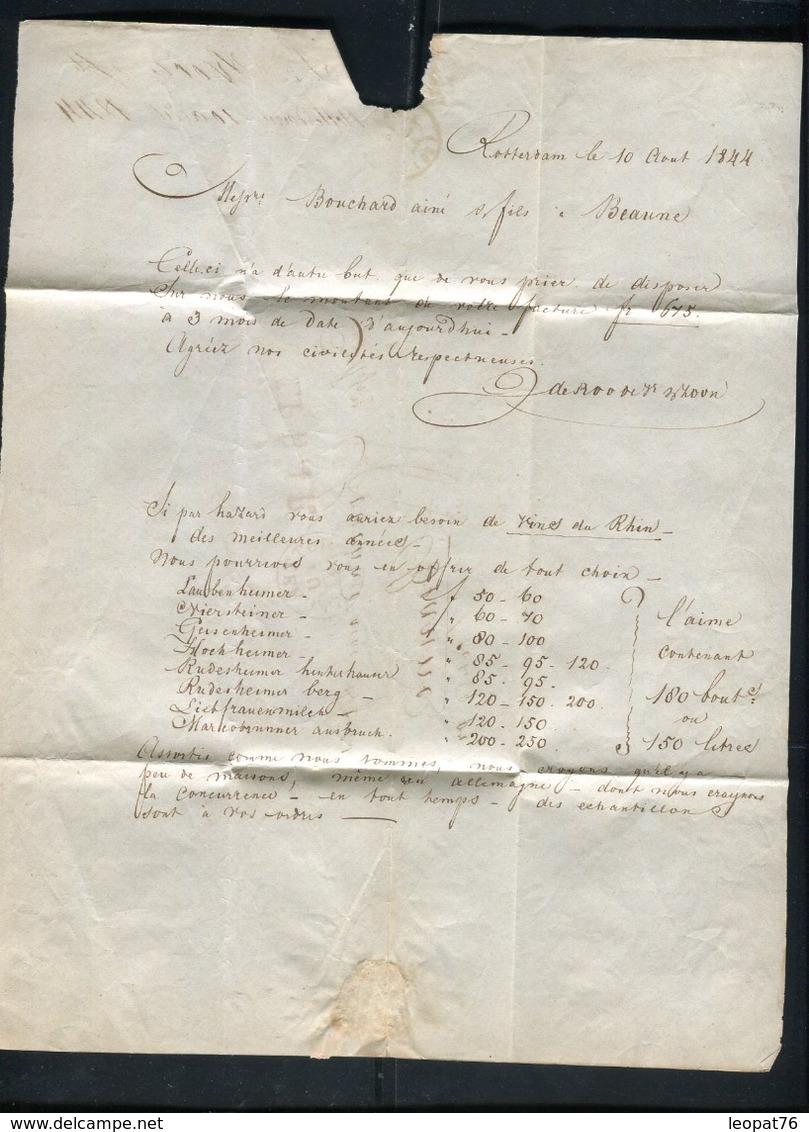 Rotterdam le 10 Aout 1844
Messrs Bouchard ainé & fils à Beaune
Celle.ci n'a d'autre but que de vous prier de disposer
Sur nous le montant de votre facture fr 675.
à 3 mois de date d'aujourdhui -
Agréez nos civilités respectueuses.
Si par hazard vous auriez besoin de Vins du Rhin -
des meilleures années -
Nous pourrions vous en offrir de tout choix -
Laubenheimer - f 50 - 60
Niersteiner - " 60 - 70
Geisenheimer - " 80 - 100
Hochheimer - " 85 - 95 - 120.
Rudesheimer hinterhauser " 85. 95.
Rudesheimer berg - " 120 - 150. 200.
Liebfrauenmilch - " 120. 150.
Marcobrunner ausbruch. " 200 - 250.
l'aime
contenant
180 bouts
ou
150 litres
Assortis comme nous sommes, nous croyons qu'il y a
peu de maisons, même en allemagne - dont nous craignons
la concurrence - en tout temps - des echantillons
sont à vos ordres -
leopat76